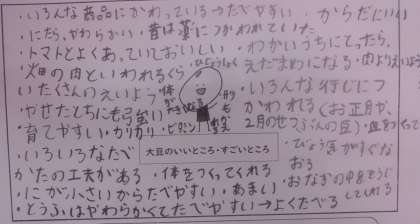 ・いろんな商品にかわっている→たべやすい
・からだにいい
・にたら、やわらかい
・昔は薬につかわれていた
・トマトとよくあっていておいしい
・わかいうちにとったら、えだまめになる
・畑の肉といわれるぐらいたくさんのえいよう
・肉よりえいよう
・いろんな行じにつかわれる(お正月や、2月のせつぶんの豆)
・やせたとちにも強い
・育てやすい
・カリカリ
・ビタミン
大豆のいいところ・すごいところ
・いろいろなたべかたの工夫がある
・体をつくってくれる
・びょう気がすぐなおる
・にが小さいからたべやすい
・あまい
・おなかの中を
してくれる
・とうふはやわらかくてたべやすい→よくたべる